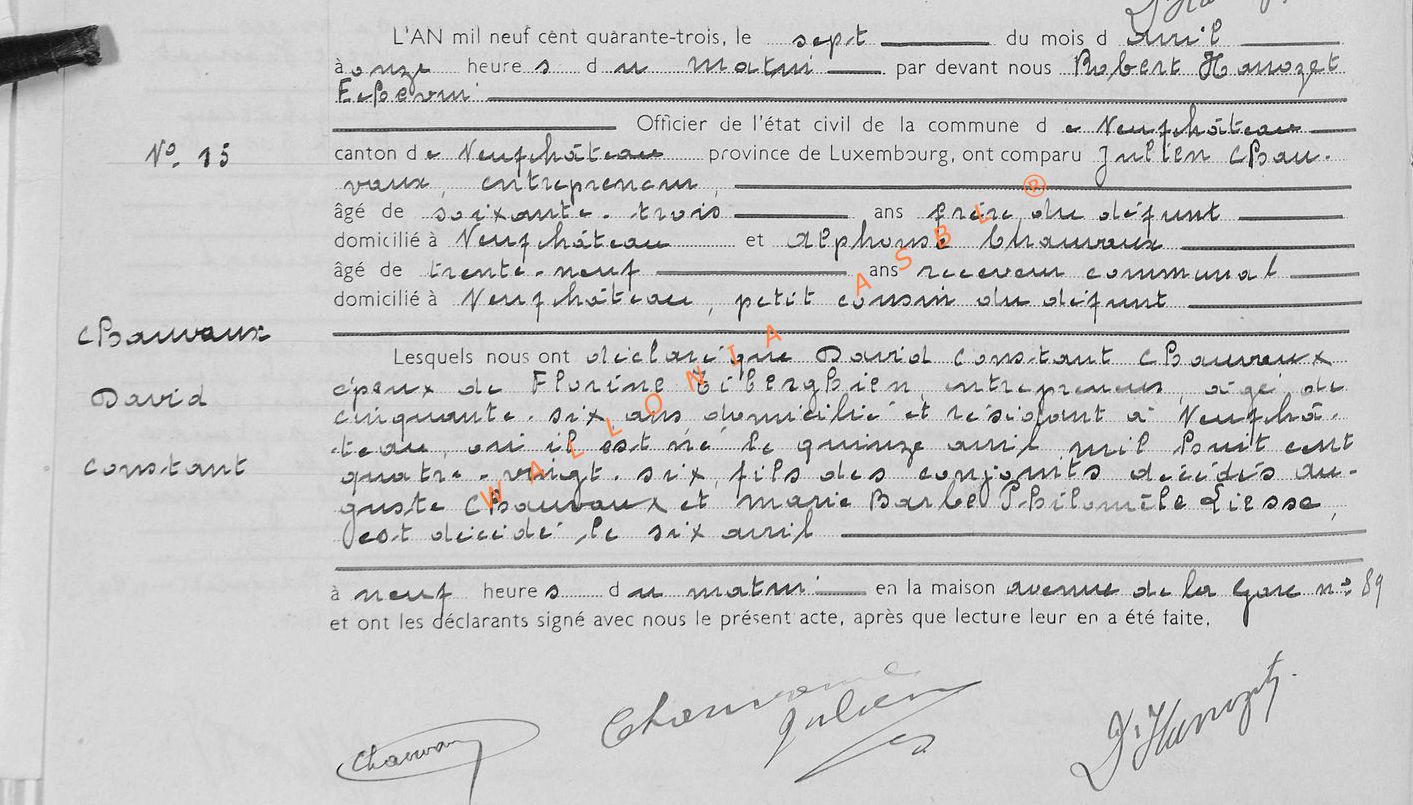 L'AN mil neuf cent quarante-trois, le sept du mois d avril
à onze heure s d u matin par devant nous Robert Hanozet
Echevin
Officier de l'état civil de la commune d e Neufchâteau
N° 15
canton d e Neufchâteau province de Luxembourg, ont comparu Julien Chau-
vaux, entrepreneur,
âgé de soixante-trois ans frère du défunt
domicilié à Neufchâteau et Alphonse Chauvaux
âgé de trente-neuf ans receveur communal
domicilié à Neufchâteau, petit cousin du défunt
Chauvaux
David
Constant
Lesquels nous ont déclaré que David Constant Chauvaux
époux de Florine Tiberghien, entrepreneur, âgé de
cinquante-six ans domicilié et résidant à Neufchâ-
teau, où il est né le quinze avril mil huit cent
quatre-vingt-six, fils des conjoints décédés Au-
guste Chauvaux et Marie Barbe Philomèle Liesse,
est décédé le six avril
à neuf heure s d u matin en la maison avenue de la Gare n° 89
et ont les déclarants signé avec nous le présent acte, après que lecture leur en a été faite.
Chauvaux
Julien
Hanozet
WALLONIA ASBL ®